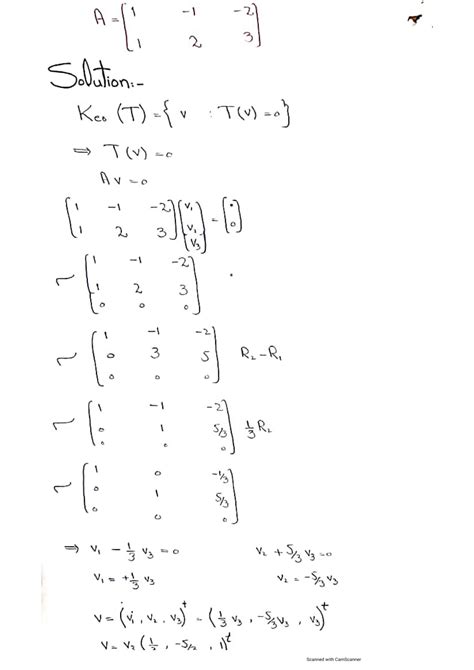 A = [1 -1 -2
1 2 3]
Solution:-
Ker (T) = { v : T(v) = 0 }
⇒ T(v) = 0
Av = 0
[1 -1 -2
1 2 3] [v₁
v₁
v₃] = [0
0]
~ [1 -1 -2
1 2 3
0 0 0]
~ [1 -1 -2
0 3 5
0 0 0] R₂ - R₁
~ [1 -1 -2
0 1 5/3
0 0 0] 1/3 R₂
~ [1 0 -1/3
0 1 5/3
0 0 0]
⇒ v₁ - 1/3 v₃ = 0 v₂ + 5/3 v₃ = 0
v₁ = +1/3 v₃ v₂ = -5/3 v₃
v = (v₁, v₂, v₃)ᵗ = (1/3 v₃, -5/3 v₃, v₃)ᵗ
Scanned with CamScanner